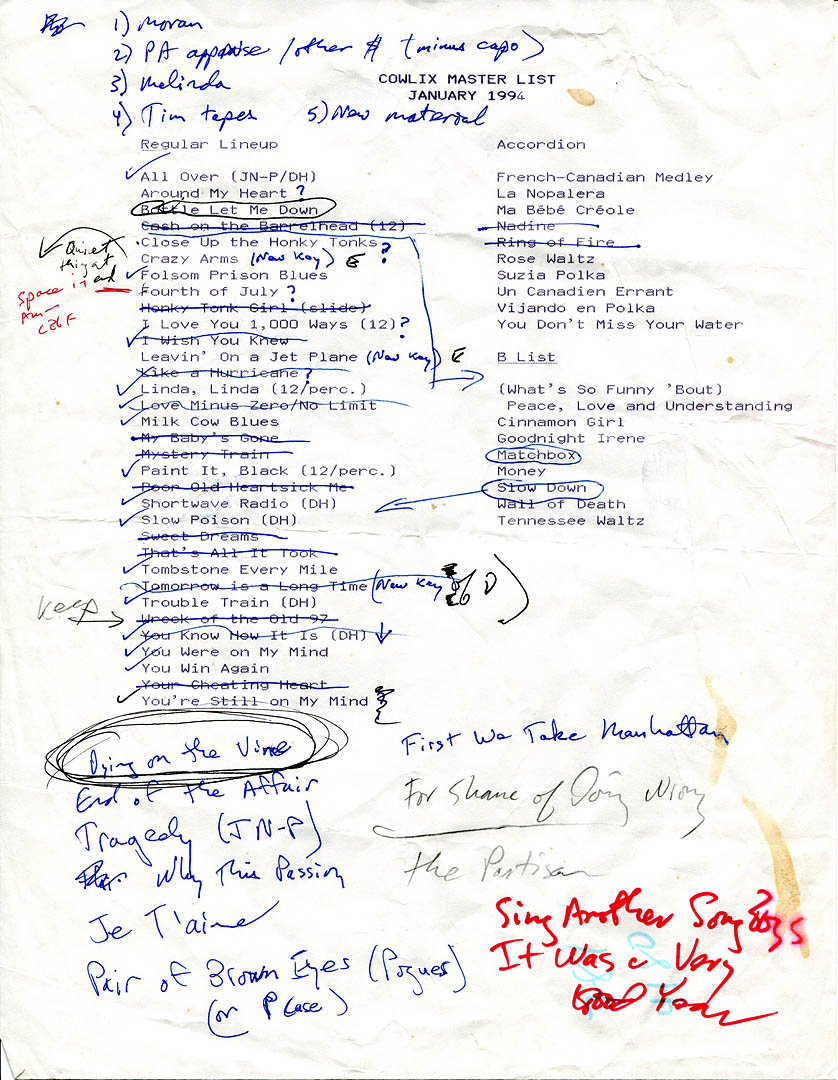 1) Moran
2) PA appraise / other # (minus capo)
3) Melinda
4) Tim tapes 5) New material
COWLIX MASTER LIST
JANUARY 1994
Regular Lineup
All Over (JN-P/DH)
Around My Heart ?
Bottle Let Me Down
Cash on the Barrelhead (12)
Close Up the Honky Tonks ?
Crazy Arms (New Key) E
Folsom Prison Blues
Fourth of July ?
Honky Tonk Girl (slide)
I Love You 1,000 Ways (12) ?
I Wish You Knew
Leavin' On a Jet Plane (New Key) E
Like a Hurricane ?
Linda, Linda (12/perc.)
Love Minus Zero/No Limit
Milk Cow Blues
My Baby's Gone
Mystery Train
Paint It, Black (12/perc.)
Poor Old Heartsick Me
Shortwave Radio (DH)
Slow Poison (DH)
Sweet Dreams
That's All It Took
Tombstone Every Mile
Tomorrow is a Long Time (New Key of D)
Trouble Train (DH)
Keep
Wreck of the Old 97
You Know How It Is (DH)
You Were on My Mind
You Win Again
Your Cheating Heart
You're Still on My Mind
Quiet
end
Space it
Am—
Accordion
French-Canadian Medley
La Nopalera
Ma Bébé Créole
Nadine
Ring of Fire
Rose Waltz
Suzia Polka
Un Canadien Errant
Vijando en Polka
You Don't Miss Your Water
B List
(What's So Funny 'Bout)
Peace, Love and Understanding
Cinnamon Girl
Goodnight Irene
Matchbox
Money
Slow Down
Wall of Death
Tennessee Waltz
Dying on the Vine
End of the Affair
Tragedy (JN-P)
Why This Passion
Je T'aime
Pair of Brown Eyes (Pogues)
(or P Case)
First We Take Manhattan
For Shame of Doing Wrong
the Partisan
Sing Another Song Boys
It Was a Very
Good Year